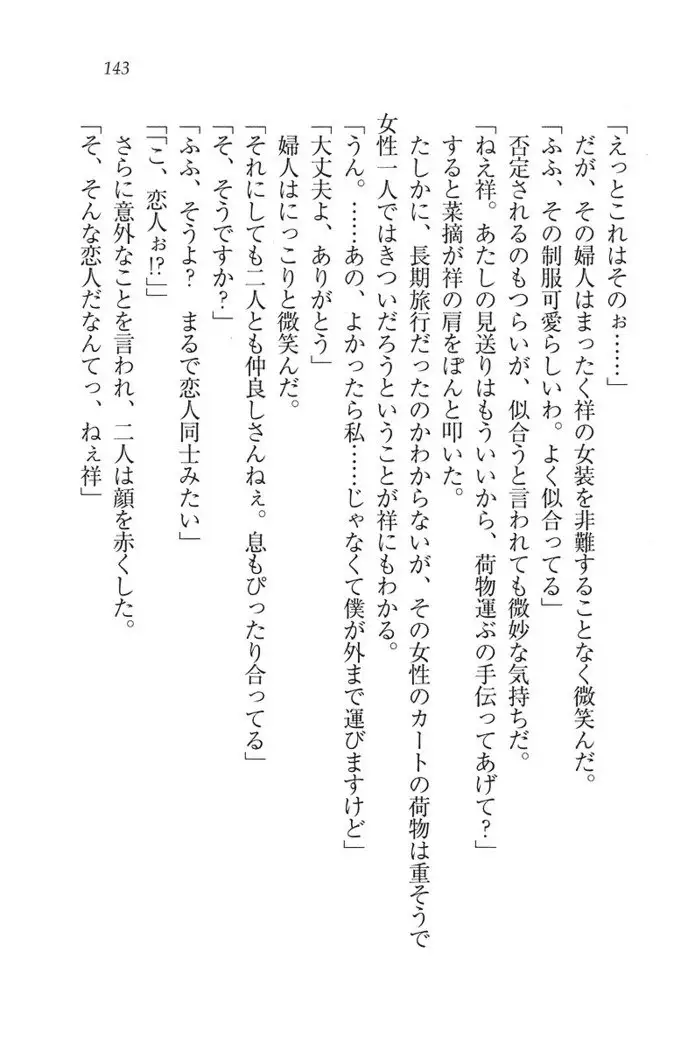 143
「えっとこれはそのぉ……」
だが、その婦人はまったく祥の女装を非難することなく微笑んだ。
「ふふ、その制服可愛らしいわ。よく似合ってる」
否定されるのもつらいが、似合うと言われても微妙な気持ちだ。
「ねえ祥。あたしの見送りはもういいから、荷物運ぶの手伝ってあげて？」
すると菜摘が祥の肩をぽんと叩いた。
たしかに、長期旅行だったのかわからないが、その女性のカートの荷物は重そうで
女性一人ではきついだろうということが祥にもわかる。
「うん。……あの、よかったら私……じゃなくて僕が外まで運びますけど」
「大丈夫よ、ありがとう」
婦人はにっこりと微笑んだ。
「それにしても二人とも仲良しさんねぇ。息もぴったり合ってる」
「そ、そうですか？」
「ふふ、そうよ？　まるで恋人同士みたい」
「「こ、恋人ぉ!?」」
さらに意外なことを言われ、二人は顔を赤くした。
「そ、そんな恋人だなんてっ、ねぇ祥」